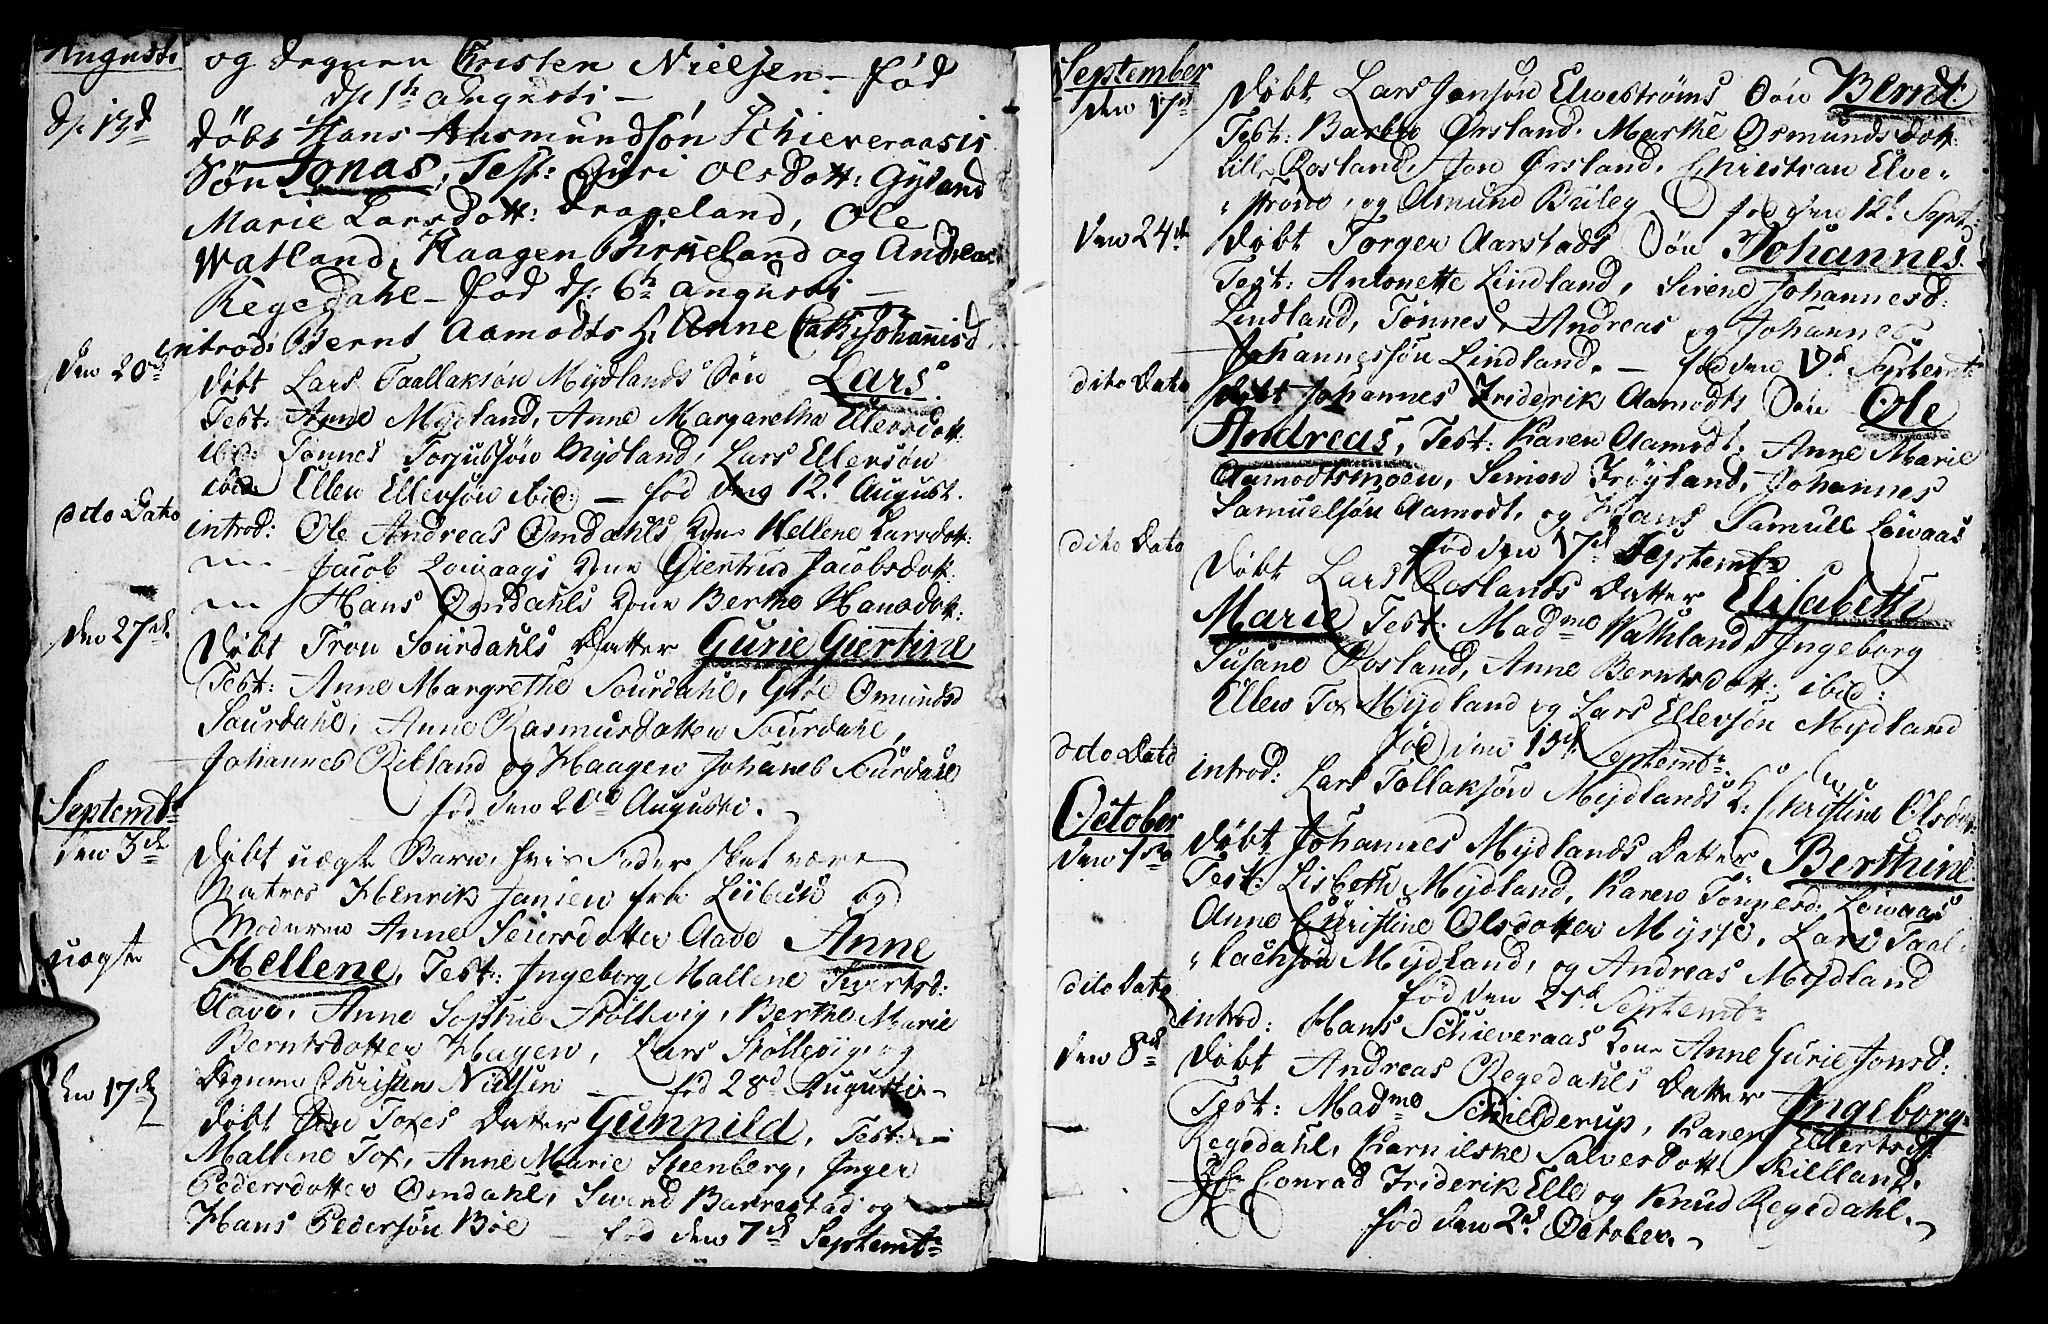 Augusti
og Degnen Christen Nielsen – fød
d. 1h Augusti –
d. 13d
døbt Hans Aasmundsøn Schieveraasis
Søn Jonas, Test: Guri Olsdott: Gyland
Marie Larsdott: Drageland, Ole
Watland, Haagen Birkeland og Andreas
Regedahl – fød d. 6h Augusti –
introd: Bernt Aamodts h. Anne Cath: Johannisd
den 20d
døbt Lars Taallaksøn Mydlands Søn Lars.
Test: Anne Mydland, Anne Margaretha Ellersdott
ibid: Tønnes Torjubsøn Mydland, Lars Ellersøn
ibid: Ellen Ellersøn ibid: – fød den 12t August.
dito Dato
introd: Ole Andreas Omdahls Kone Hellene Larsdott:
– Jacob Lowaags Kone Giertrud Jacobsdott.
– Hans Omdahls Kone Berthe Hansdot:
den 27de
døbt Tron Sourdahls Datter Gurie Giertine
Test: Anne Margrethe Sourdahl, Omunds
Saurdahl, Anne Rasmusdatter Sourdahl,
Johannes Rikland og Haagen Johanes Surdahl
fød den 20d Augusti.
Septembr
den 3de
døbt uægte Barn, hvis Fader skal være
Matros Henrik Jansen fra Lübeck og
Moderen Anne Seiersdotter Aave Anne
uægte
Hellene, Test: Ingeborg Mallene Sivertsd:
Aave, Anne Sophie Støllevig, Berthe Marie
Berntsdotter Hagen, Lars Støllevig og
Degnen Christen Nielsen – fød 28d Augusti –
den 17de
døbt Jon Toxes Datter Gunnild, Test:
Mallene Tox, Anne Marie Steenberg, Inger
Pedersdotter Omdahl, Swend Barrestad og
Hans Pedersøn Bøe – fød den 7de Septembr
September
den 17d
døbt Lars Jonsøn Elvestrøms Søn Bernt.
Test: Barbro Ørsland, Marthe Osmundsdott:
Lille Rosland, Jon Ørsland, Christian Elve-
strøm, og Amund Briley fød den 12t Sept:
den 24de
døbt Torger Aarstads Søn Johannes.
Test: Antonette Lindland, Sirene Johannesd:
Lindland, Tønnes, Andreas og Johannes
Johannessøn Lindland. – fød den 17d Septembr
dito Dato
døbt Johannes Friderik Aamodts Søn Ole
Andreas, Test: Karen Aamodt, Anne Marie
Aamodtsmoen, Simon Frøyland, Johannes
Samuelsøn Aamodt, og Hans Samuel Lowaas
fød den 17d Septembr
dito Dato
døbt Lars Roslands Datter Elisabeth
Marie Test: Madme Wathland, Ingeborg
Susane Rosland, Anne Berntsdott: ibid:
Ellen Tox Mydland og Lars Ellersøn Mydland
fød den 13d Septembr
dito Dato
introd: Lars Tollaksøn Mydlands K: Christine Olsdott:
October
den 1ste
døbt Johannes Mydlands Datter Berthine
Test: Lisbeth Mydland, Karen Tønnesd: Lowaas
Anne Christine Olsdotter Mysse, Lars Taal-
lachsøn Mydland, og Andreas Mydland
fød den Septembr
dito Dato
introd: Hans Schieveraas Kone Anne Gurie Jonsd:
den 8de
døbt Andreas Regedahls Datter Ingeborg
Test: Madme Schielderup, Karen Ellertsd:
Regedahl, Karnilske Salvesdott: Kielland,
Hr Conrad Friderik Elle og Knud Regedahl.
fød den 2d October.